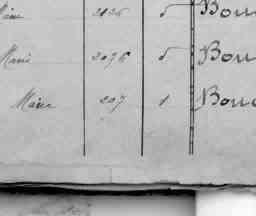 2126 5 Bou
Marie 2076 5 Bou
Marie 207 1 Bouc